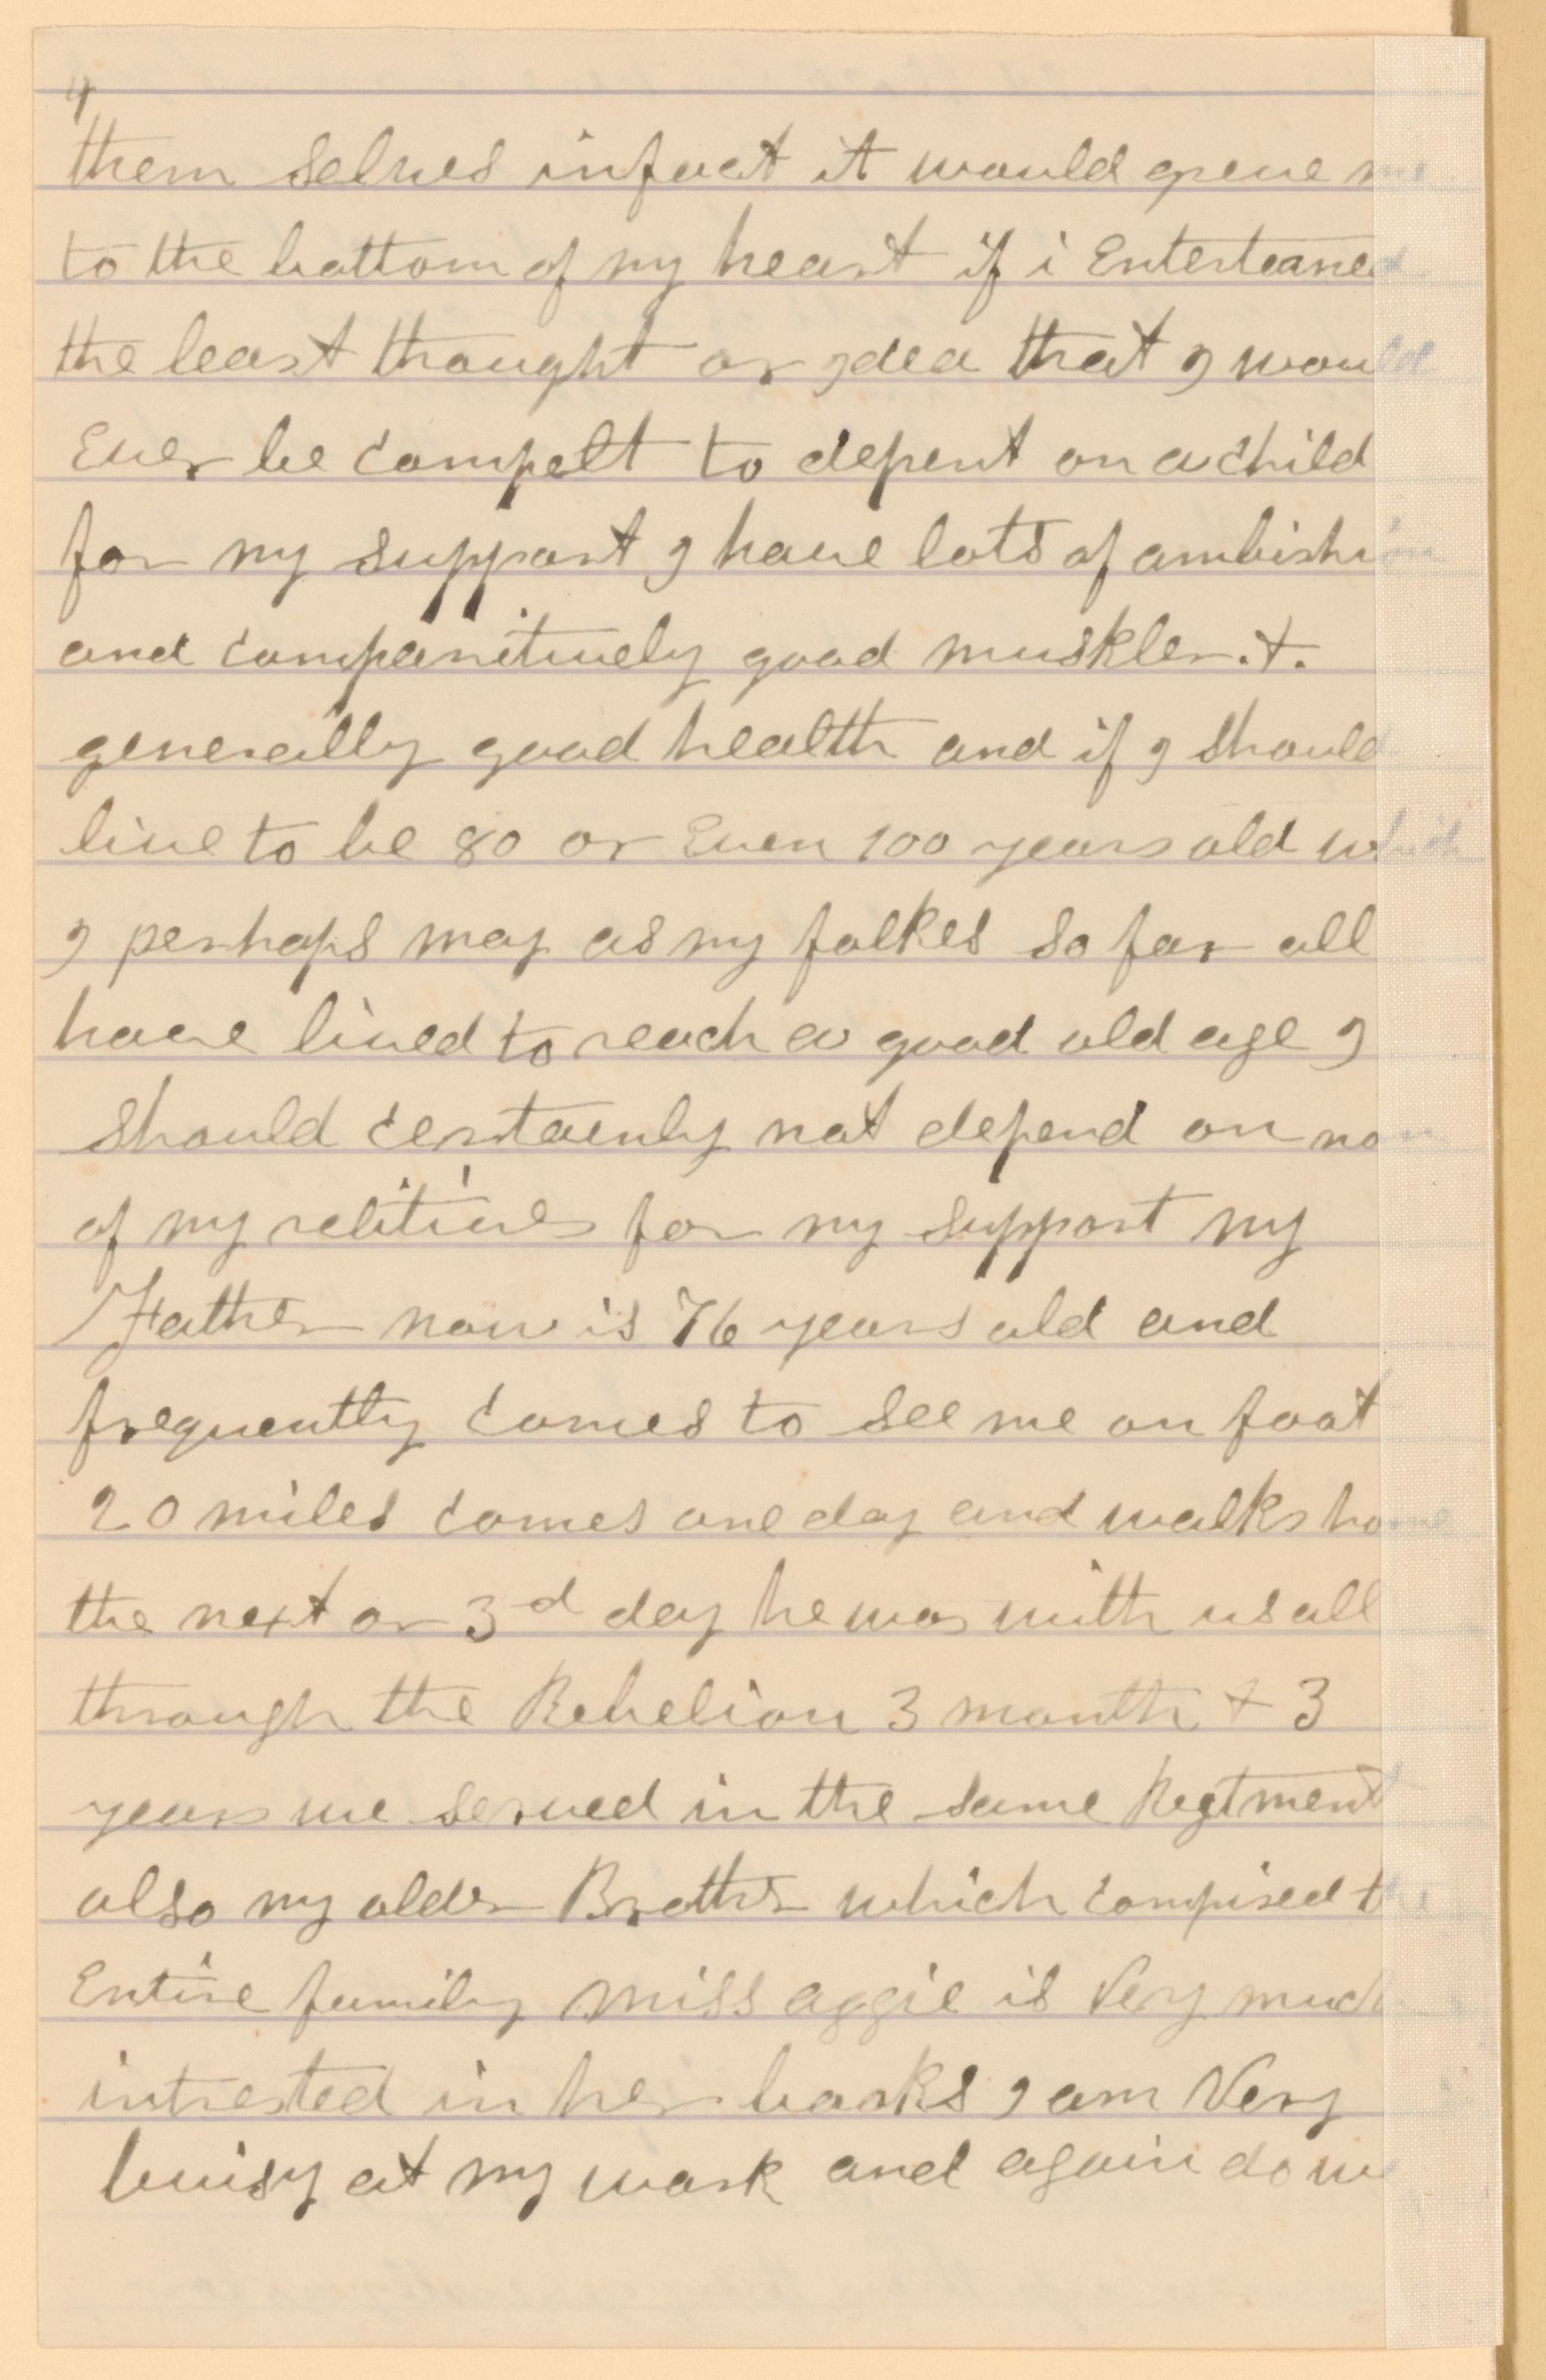 4
them selves infact it would greve me
to the bottom of my heart if i Enterteaned
the least thought or Idea that I would
Ever be compelt to depent on a child
for my support I have lots of ambishion
and comparitively good muskler. +.
generally good health and if I should
live to be 80 or Even 100 years old which
I perhaps may as my folkes so far all
have lived to reach a good old age I
should certainly not depend on non
of my relitives for my support my
Father now is 76 years old and
frequently comes to see me on foot
20 miles comes one day and walks home
the next or 3d day he was with us all
through the Rebelion 3 month + 3
years we served in the same Regtment
also my older Brother which compised the
Entire family miss aggie is Very much
intrested in her books I am Very
buisy at my work and again do we